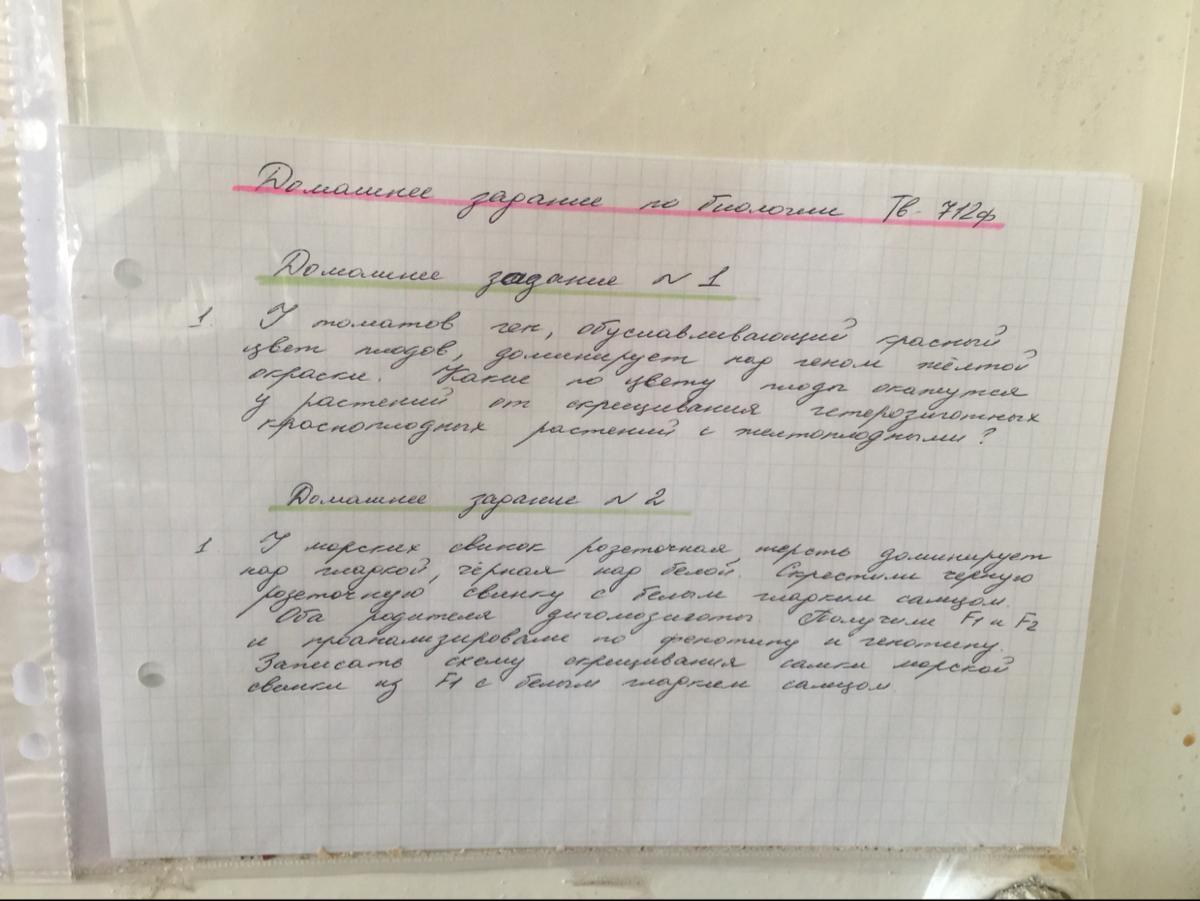 Домашнее задание по биологии Тв-712ф
Домашнее задание №1
1. У томатов ген, обуславливающий красный
цвет плодов, доминирует над геном жёлтой
окраски. Какие по цвету плоды окажутся
у растений от скрещивания гетерозиготных
красноплодных растений с желтоплодными?
Домашнее задание №2
1 У морских свинок розеточная шерсть доминирует
над гладкой, чёрная над белой. Скрестили чёрную
розеточную свинку с белым гладким самцом.
Оба родителя дигомозиготы. Получили F1 и F2
и проанализировали по фенотипу и генотипу.
Записать схему скрещивания самки морской
свинки из F1 с белым гладким самцом